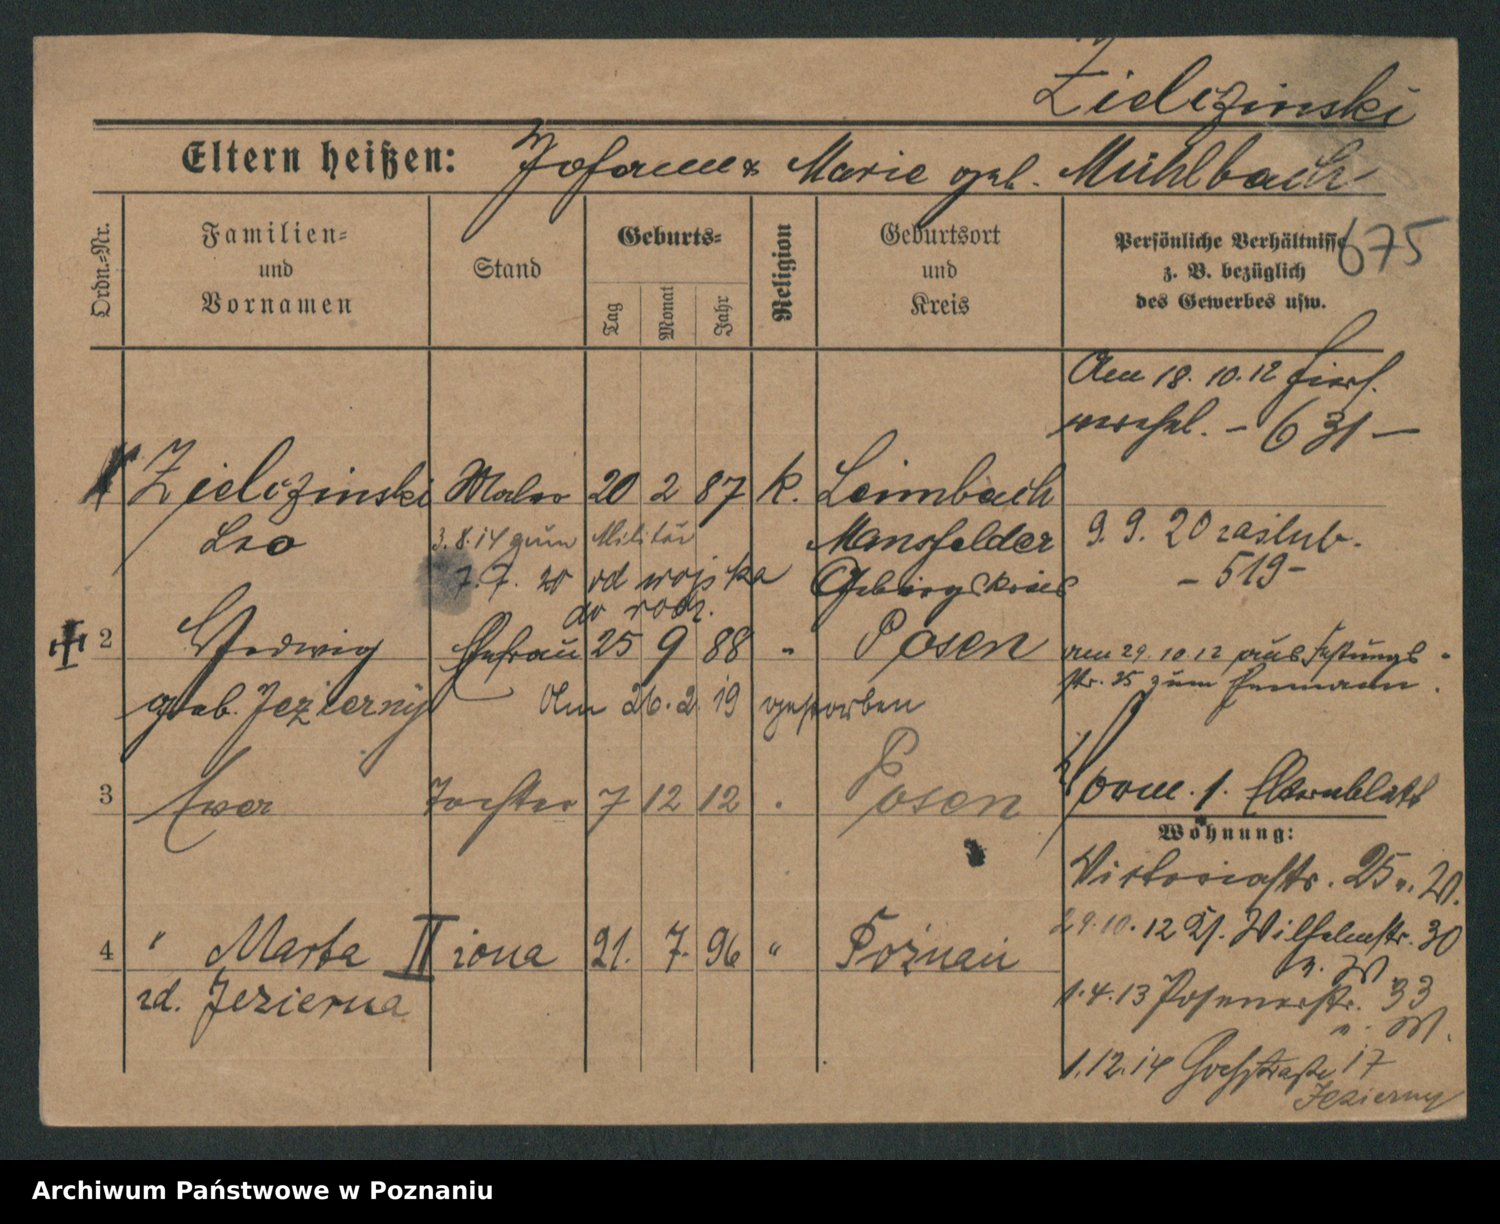 Zielczinski
Eltern heißen: Johann & Marie geb. Mühlbach
675
Ordn.-Nr.
Familien- und Vornamen
Stand
Geburts-
Tag
Monat
Jahr
Religion
Geburtsort und Kreis
Persönliche Verhältnisse
z. B. bezüglich
des Gewerbes usw.
Am 18. 10. 12 hier
verehel. - 631 -
1 Zielczinski Maler 20 2 87 k. Leimbach
Leo
3.8.14 zum Militär
Mansfelder
Gebirgskreis
7. 7. 20 od wojska
do rodz.
9. 9. 20 zaślub.
- 519 -
2 Hedwig Ehefrau 25 9 88 " Posen
geb. Jezierny
Am 26. 2. 19 gestorben
am 29. 10. 12 aus Festungs-
str. 25 zum Ehemann.
3 Ewa Tochter 7 12 12 " Posen
Vorm. 1. Elternblatt
Wohnung:
Viktoriastr. 25 v. W.
29.10.12 Wilhelmstr. 30
v. W
1.4.13 Posenerstr. 33
v. W.
1.12.14 Hochstraße 17
Jezierny
4 " Marta II żona 21. 7. 96 " Poznań
zd. Jezierna
Archiwum Państwowe w Poznaniu